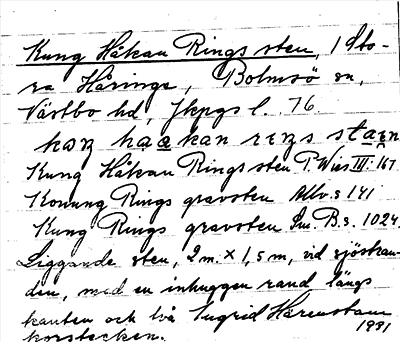 Kung Håkan Rings sten, i Sto-
ra Håringe, Bolmsö sn,
Västbo hd, Jkpgs l. 76.
kɷŋ hɷakan rɛŋs stan
Kung Håkan Rings sten P. Wies. III: 167
Konung Rings gravsten Allv. s 141
Kung Rings gravsten Su. B. s. 1024.
Liggande sten, 2 m. x 1,5 m, vid sjöstran-
den, med en inhuggen rand längs
kanten och två Ingrid Härenstam
korstecken. 1931